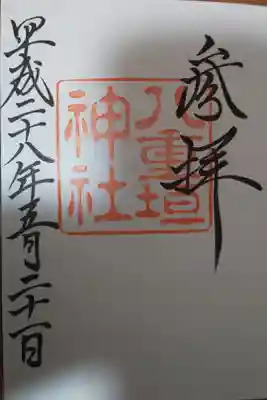 参拝
八重垣
神社
平成二十八年五月二十一日